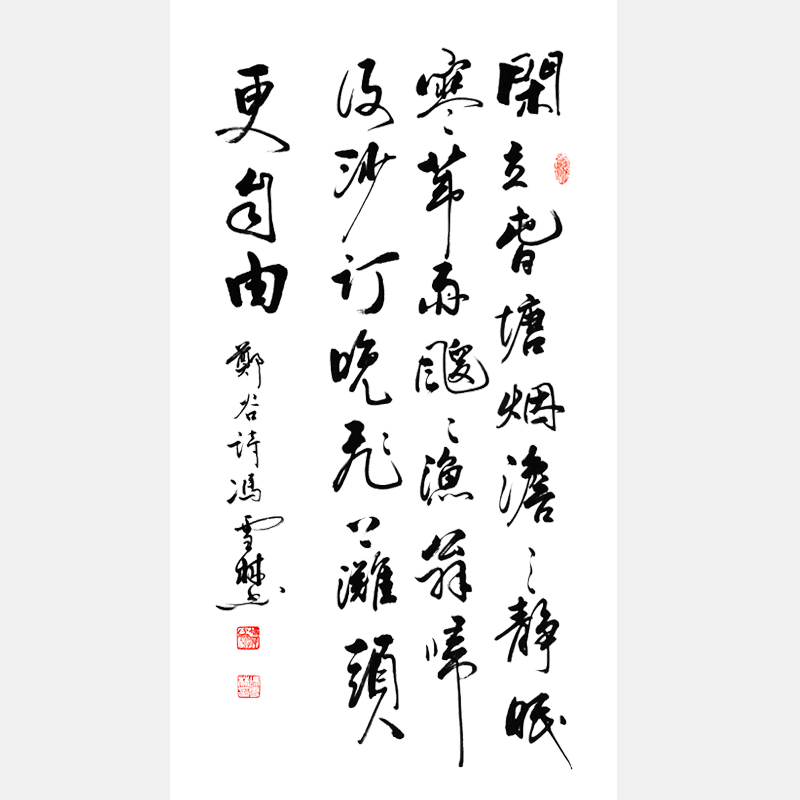 閑立春塘烟澹〻静眠
寒葦雨飕〻漁翁歸
後沙汀晚飛下灘頭
更自由 鄭谷詩 馮雪林书